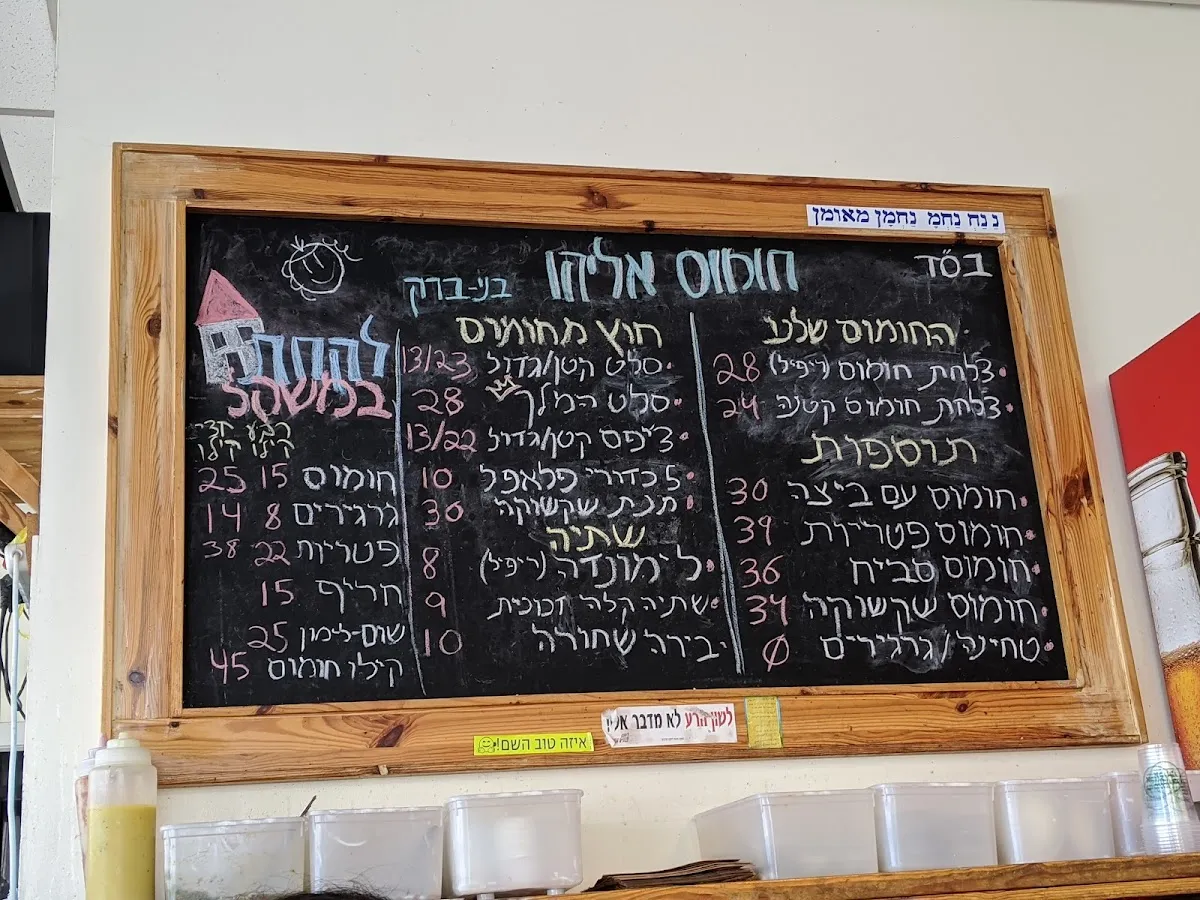 נ נַחְ נַחְמָ נַחְמָן מאומן
בס"ד
חומוס אליהו
בני-ברק
החומוס שלנו
צלחת חומוס (ריפיל) 28
צלחת חומוס קטנה 24
תוספות
חומוס עם ביצה 30
חומוס פטריות 34
חומוס סביח 36
חומוס שקשוקה 34
טחינה / גרגירים ∅
חוץ מחומוס
סלט קטן/גדול 13/23
סלט המלך 28
צ'יפס קטן/גדול 13/22
5 כדורי פלאפל 10
תבת שקשוקה 30
שתיה
לימונדה (ריפיל) 8
שתיה קלה זכוכית 9
בירה שחורה 10
לקחת
במשקל
רבע חצי
קילו קילו
חומוס 15 25
גרגירים 8 14
פטריות 22 38
חריף 15
שום-לימון 25
קילו חומוס 45
לשון הרע לא מדבר אלי!
איזה טוב השם!